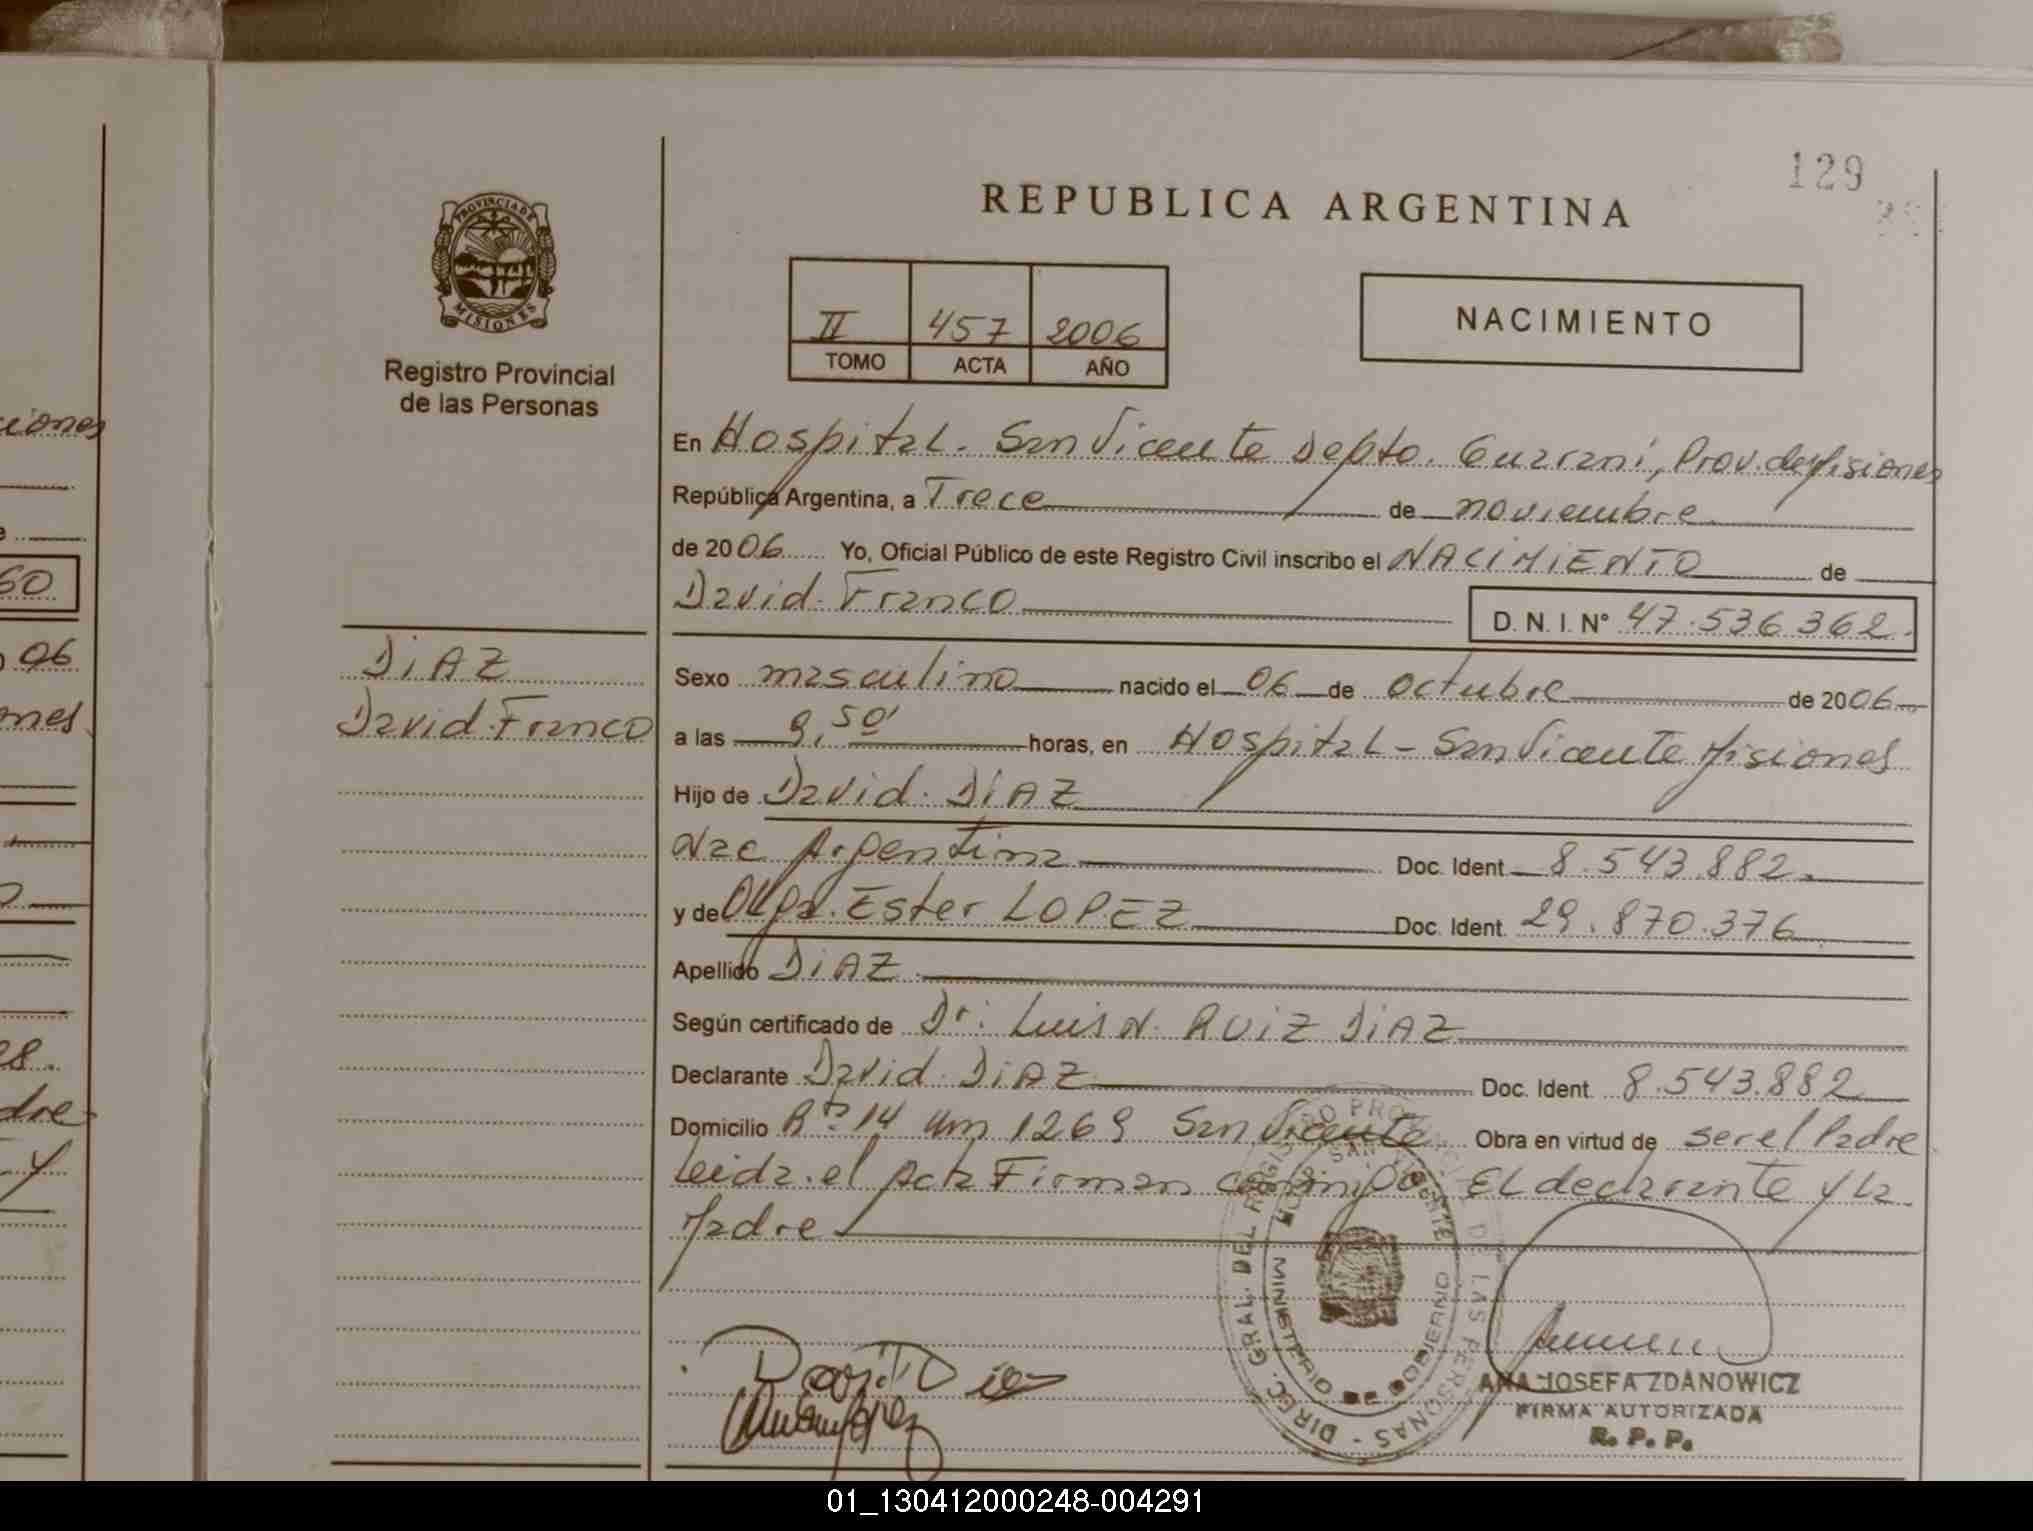 129
REPUBLICA ARGENTINA
PROVINCIA DE
MISIONES
Registro Provincial
de las Personas
II 457 2006
TOMO ACTA AÑO
NACIMIENTO
En Hospital - San Vicente Depto. Guarani, Prov. de Misiones
República Argentina, a Trece de noviembre
de 2006 Yo, Oficial Público de este Registro Civil inscribo el NACIMIENTO de
David Franco D. N. I. Nº 47.536.362.
DiAZ
David Franco
Sexo masculino nacido el 06 de octubre de 2006
a las 9,50' horas, en Hospital - San Vicente Misiones
Hijo de David DiAZ
Nac Argentina Doc. Ident. 8.543.882.
y de Olga Ester LOPEZ Doc. Ident. 29.870.376
Apellido DiAZ
Según certificado de Dr: Luis N. RUiZ DiAZ
Declarante David DiAZ Doc. Ident. 8.543.882
Domicilio Rta 14 Km 1269 San Vicente Obra en virtud de ser el Padre
Leida el Acta Firman conmigo El declarante y la
Madre
DIREC. GRAL. DEL REGISTRO PROVINCIAL DE LAS PERSONAS
MINISTERIO DE GOBIERNO
ANA JOSEFA ZDANOWICZ
FIRMA AUTORIZADA
R. P. P.
ciones
60
06
nes
dre
y
01_130412000248-004291